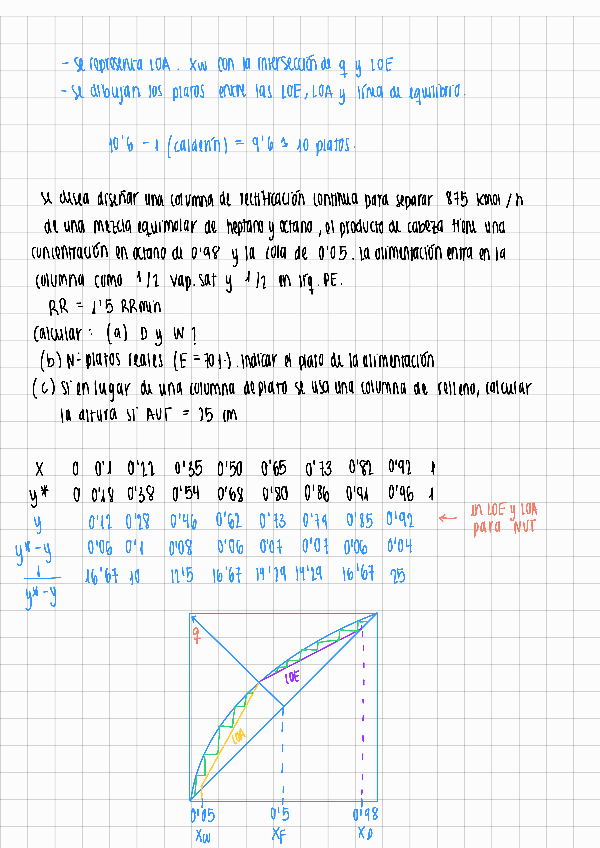 - se representa LOA. Xw con la intersección de q y LOE
- se dibujan los platos entre las LOE, LOA y línea de equilibrio.
10'6 - 1 (calderín) = 9'6 ≈ 10 platos.
Se desea diseñar una columna de rectificación continua para separar 875 kmol/h
de una mezcla equimolar de heptano y octano, el producto de cabeza tiene una
concentración en octano de 0'98 y la cola de 0'05. la alimentación entra en la
columna como 1/2 vap. sat y 1/2 en líq. PE.
RR = 1'5 RRmin
Calcular: (a) D y W?
(b) Nº platos reales (E = 70%). Indicar el plato de la alimentación
(c) Si en lugar de una columna de plato se usa una columna de relleno, calcular
la altura si AUT = 25 cm
X 0 0'1 0'22 0'35 0'50 0'65 0'73 0'82 0'92 1
y* 0 0'18 0'38 0'54 0'68 0'80 0'86 0'91 0'96 1
y 0'12 0'28 0'46 0'62 0'73 0'79 0'85 0'92 ← en LOE y LOA
para NUT
y*-y 0'06 0'1 0'08 0'06 0'07 0'07 0'06 0'04
1/y*-y 16'67 10 12'5 16'67 14'29 14'29 16'67 25
q
LOE
LOA
0'05 0'5 0'98
XW XF XD